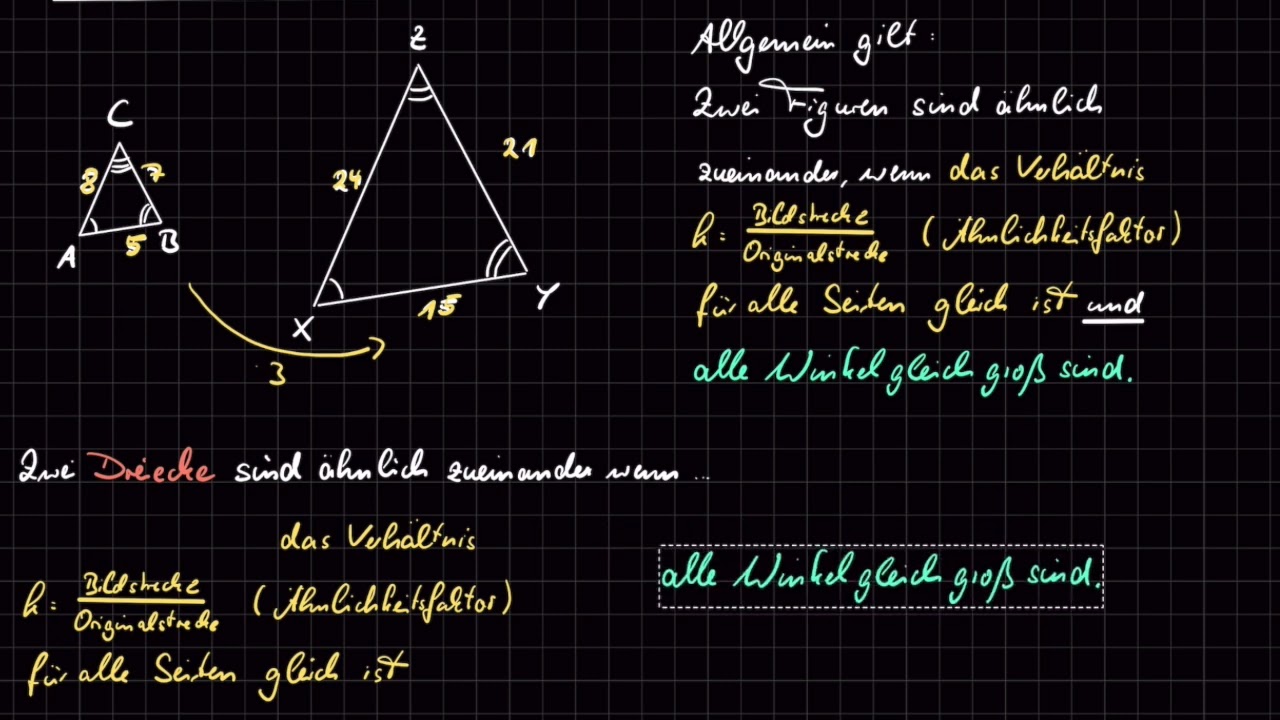 Z
C
8
7
A
5
B
24
21
X
15
Y
3
Allgemein gilt:
Zwei Figuren sind ähnlich
zueinander, wenn das Verhältnis
k = Bildstrecke / Originalstrecke (Ähnlichkeitsfaktor)
für alle Seiten gleich ist und
alle Winkel gleich groß sind.
Zwei Dreiecke sind ähnlich zueinander wenn ...
das Verhältnis
k = Bildstrecke / Originalstrecke (Ähnlichkeitsfaktor)
für alle Seiten gleich ist
alle Winkel gleich groß sind.